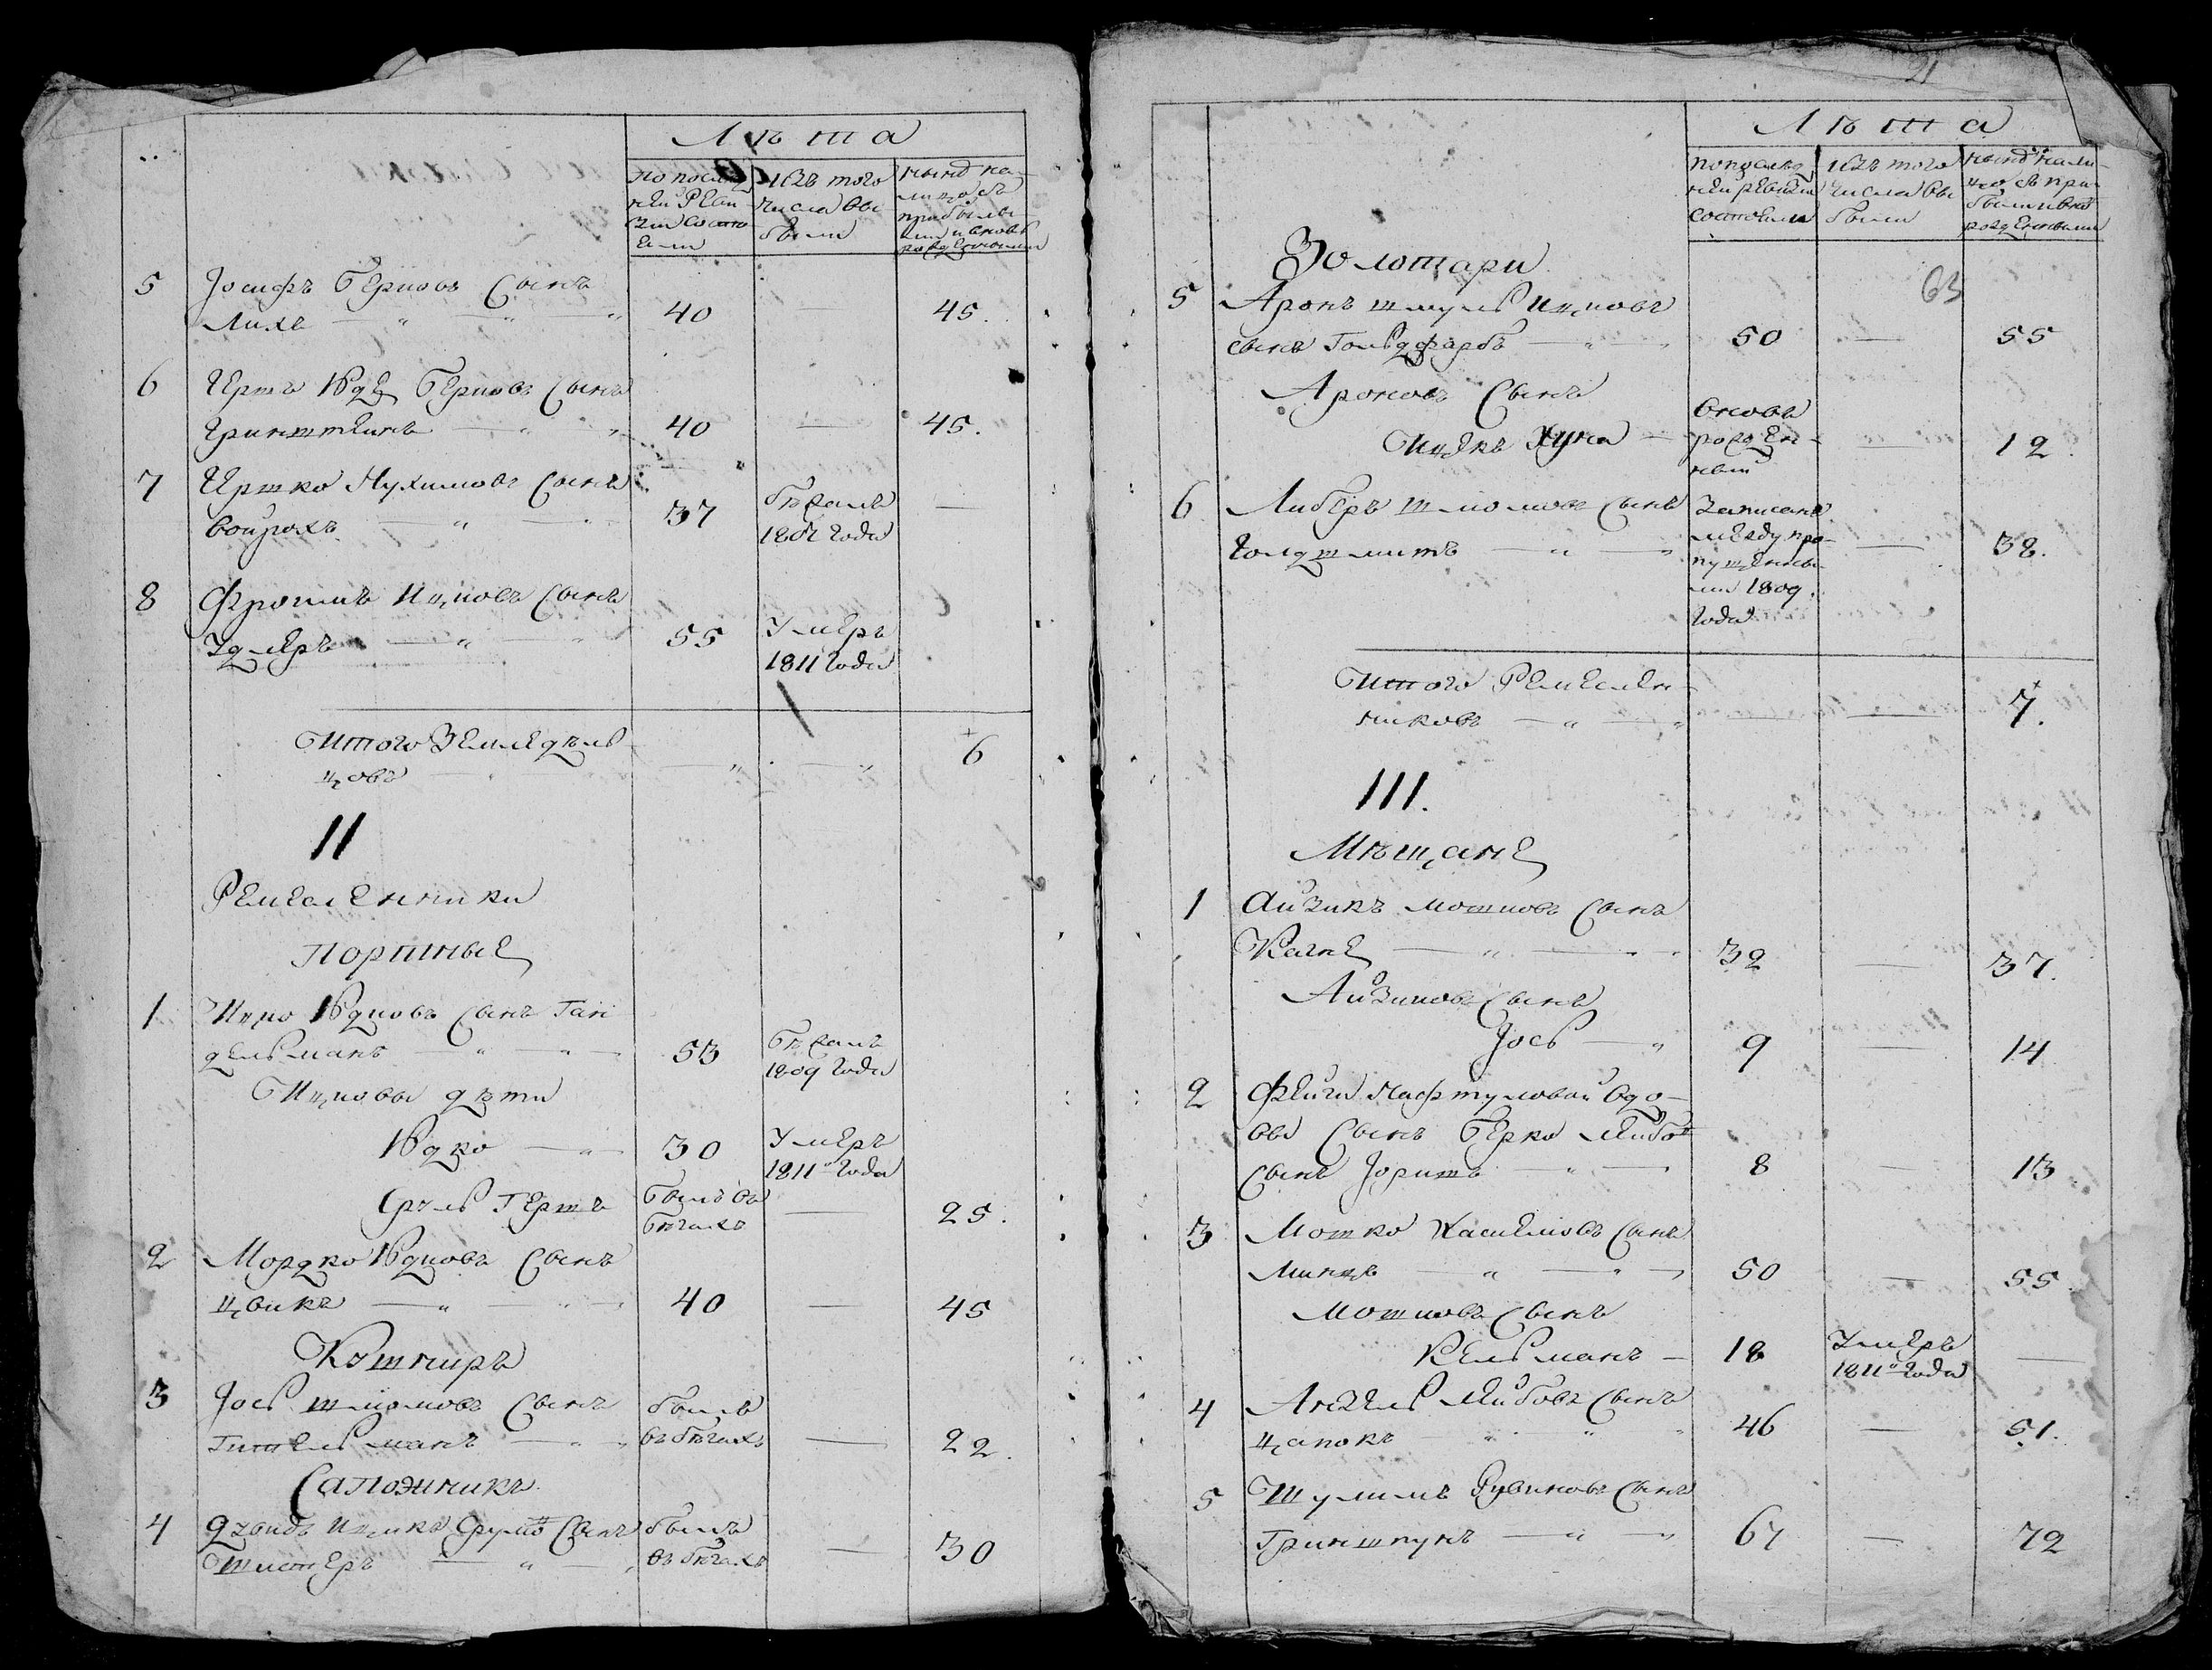 Лѣта
по послѣд
ней Реви
зіи состо
яли
изъ того
числа вы
были
нынѣ на
лицо съ
прибылы
ми и вновь
рожденными
5 Іосифъ Берковъ Сынъ
Лихъ 40 — 45.
6 Гершъ Юдя Берковъ Сынъ
Гринштеинъ 40 — 45.
7 Гершко Нухимовъ Сынъ
37 бѣжалъ —
1807 года
8 Фроимъ Ицковъ Сынъ
55 Умеръ
1811 года
Итого Земледѣль
цовъ — — 6
II
Ремесленники
Портные
1 Ицко Юдковъ Сынъ Ган
дельманъ 53 Бѣжалъ
1809 года
Ицковы дѣти
Юдко 30 Умеръ
1811 года
Сруль Гершъ былъ въ
бѣгахъ — 25.
2 Мордко Юдковъ Сынъ
Цвикъ 40 — 45
Кушниръ
3 Іось Шліомовъ Сынъ
Гительманъ былъ
въ бѣгахъ — 22.
Сапожникъ
4 Ицикъ Срулев Сынъ былъ
въ бѣгахъ — 30
21
Лѣта
по послѣд
ней ревизіи
состояли
изъ того
числа вы
были
нынѣ нали
цо съ при
былыми вно
рожденными
63
Золотари
5 Аронъ Шмуль Ицковъ
сынъ Гольдфарбъ 50 — 55
Ароновъ Сынъ
Ицекъ Хуна вновь
рожден-
ный — 12.
6 Либеръ Шліомовъ Сынъ
Голдшмитъ записанъ
между про-
пущенны
ми 1809
года — 38.
Итого Ремеслен
никовъ — — 7.
III.
Мѣщане
1 Айзикъ Мошковъ Сынъ
Кагне 32 — 37.
Айзиковъ Сынъ
Іось 9 — 14
2 Фейги Нафтуловой вдо-
вы Сынъ Берко Лейбов
сынъ 8 — 13.
3 Мошко Хаскелювъ Сынъ
Минцъ 50 — 55.
Мошковъ Сынъ
Кельманъ 18 Умеръ —
1811 года
4 Анзель Лейбовъ Сынъ
Цапокъ 46 — 51.
5 Шулимъ Рувиновъ Сынъ
Гриншпунъ 67 — 72